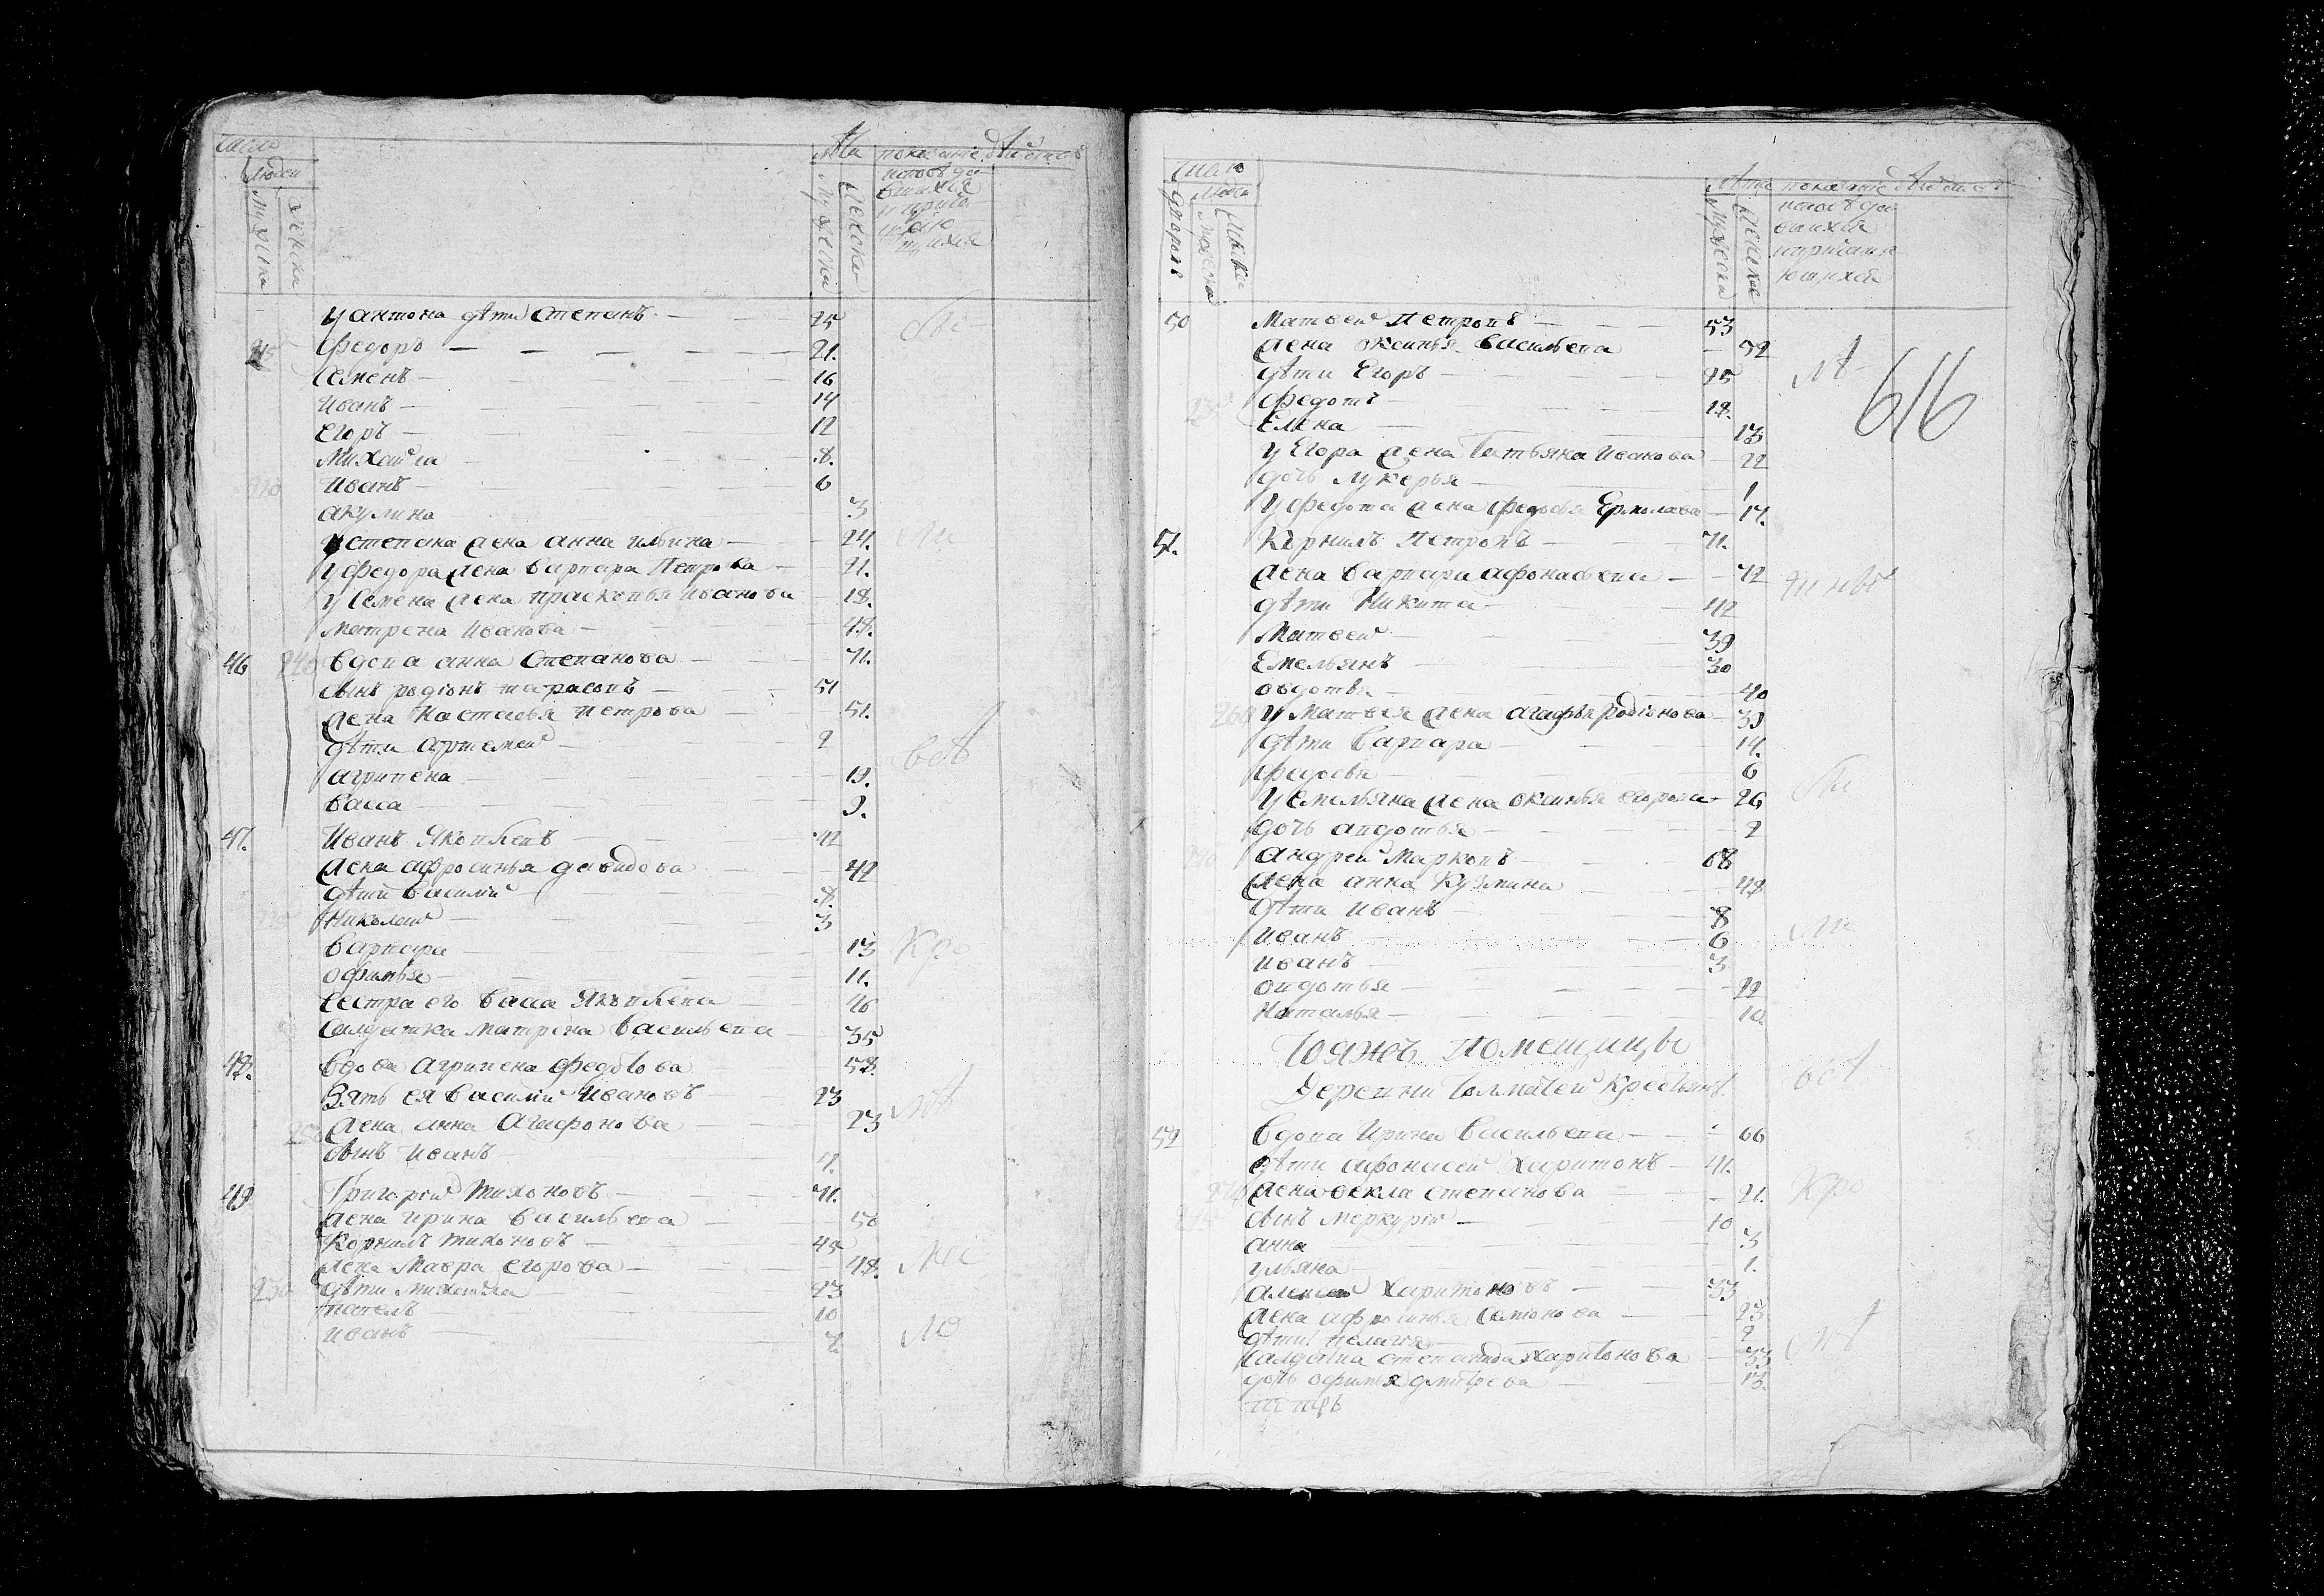 число
людей
мужска
женска
лѣта
показанiе дѣйства
мужеска
женска
исповѣдо
вшихся
У антона дѣти Степанъ 25
Федоръ 21.
Семенъ 16
Иванъ 14
Егоръ 12
Михайла 8.
Иванъ 6
акулина 3
У степана жена анна ильина 24.
У Федора жена варвара Петрова 21.
У Семена жена прасковья Иванова 18.
матрена Иванова 48.
46 вдова анна Степанова 71.
сынъ родiонъ тарасовъ 51
жена Настасья петрова 51.
дѣти артемей 2
агрипена 19.
васа 9.
47. Иванъ Яковлевъ 42
жена афросинья давидова 42
дѣти василiй 8.
Николай 3
варвара 13
офимья 11.
сестра его васа Яковлева 46
салдатка матрена васильева 35
48. вдова агрипена федотова 58.
Зять ея василiй Ивановъ 23
жена анна Агафонова 23
сынъ Иванъ
49 Григорiй тихоновъ 71.
жена ирина васильева 50
Корнилъ тихоновъ 45
жена мавра егорова 48.
230 дѣти михайла 23
павелъ 10
иванъ
число
дворовъ
людей
мужеска
женска
лѣта
показанiе дѣйства
мужеска
женска
исповѣдо
вшихся
616
50 Матвей Петровъ 53
жена оксинья васильева 52
дѣти Егоръ 25
Федотъ 18.
Елена 13
У Егора жена татьяна иванова 22
дочь лукерья 1
У федота жена федосья Ермолаева 17.
51. Корнилъ Петровъ 71.
жена варвара афонасьева 72
дѣти Никита 42
Матвей 39
Емельянъ 30
овдотья 40
260 У Матвея жена агафья родiонова 39
дѣти варвара 14.
федосья 6
У емельяна жена оксинья егорова 26
дочь авдотья 2
андрей Марковъ 68
жена анна Кузмина 48
дѣти иванъ 8
иванъ 6
иванъ 3
овдотья 22
Наталья 10.
Тояжъ помещицы
Деревни толмачей крестьянъ
52 вдова Ирина васильева 66
дѣти афонасей харитонъ 41.
жена фекла степанова 21.
сынъ меркурiй 10
анна 3
ульяна 1.
харитоновъ 33
жена афросинья семонова 23
дѣти пелагея 2
салдатка степанида харитонова 33
дочь офимья дмитрева 13.